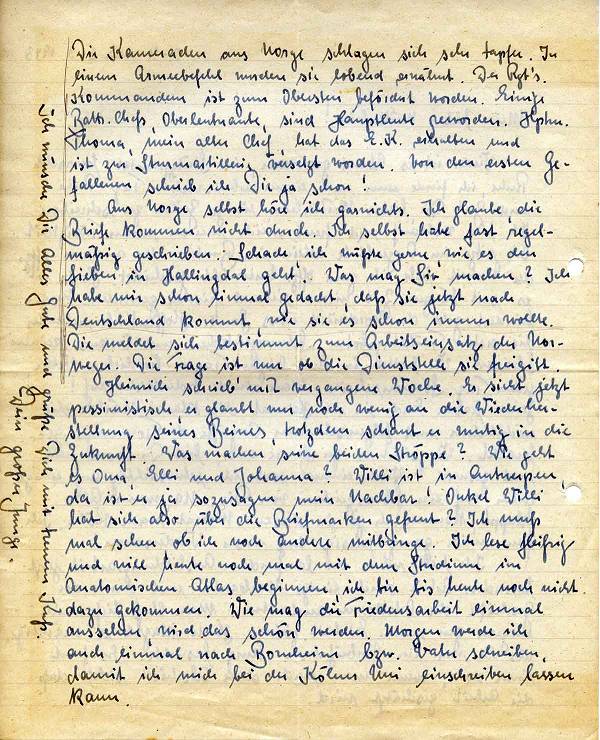 Die Kameraden aus Norge schlagen sich sehr tapfer. In
einem Armeebefehl wurden sie lobend erwähnt. Der Rgt's.
Kommandeur ist zum Obersten befördert worden. Einige
Battr. Chefs, Oberleutnante, sind Hauptleute geworden. Hptm.
Thoma, mein alter Chef, hat das E.K. erhalten und
ist zur Sturmartillerie versetzt worden. Von den ersten Ge-
fallenen schrieb ich Dir ja schon!
Aus Norge selbst höre ich garnichts. Ich glaube die
Briefe kommen nicht durch. Ich selbst habe fast regel-
mäßig geschrieben. Schade ich wüßte gerne wie es den
Lieben in Hallingdal geht. Was mag Siv machen? Ich
habe mir schon einmal gedacht, daß sie jetzt nach
Deutschland kommt, wie sie es schon immer wollte.
Die meldet sich bestimmt zum Arbeitseinsatz der Nor-
weger. Die Frage ist nur ob die Dienststelle sie freigibt.
Heinrich schrieb mir vergangene Woche. Er sieht jetzt
pessimistisch er glaubt nur noch wenig an die Wiederher-
stellung seines Beines, trotzdem schaut er mutig in die
Zukunft. Was machen seine beiden Ströppe? Wie geht
es Oma, Elli und Johanna? Willi ist in Antwerpen,
da ist er ja sozusagen mein Nachbar! Onkel Willi
hat sich also über die Briefmarken gefreut? Ich muß
mal sehen ob ich noch andere mitbringe. Ich lese fleißig
und will heute noch mal mit dem Studium im
Anatomischen Atlas beginnen, ich bin bis heute noch nicht
dazu gekommen. Wie mag die Friedensarbeit einmal
aussehen, wird das schön werden. Morgen werde ich
auch einmal nach Bornheim bzw. Vater schreiben,
damit ich mich bei der Kölner Uni einschreiben lassen
kann.
Ich wünsche Dir Alles Gute und grüße Dich mit treuem Kuß.
Dein großer Junge.